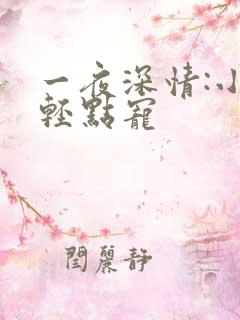 一夜深情:小
輕點寵
閆麗靜